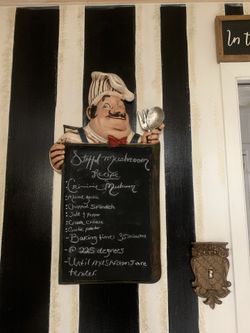 In th
Stuffd mushroom
Recipe
- Crimini Mushroom
- Minced garlic
- Chopped Spinach
- Salt & Pepper
- Cream Cheese
- Garlic powder
- Baking time 35 minutes
- @ 225 degrees
- Until mushrooms are
tender